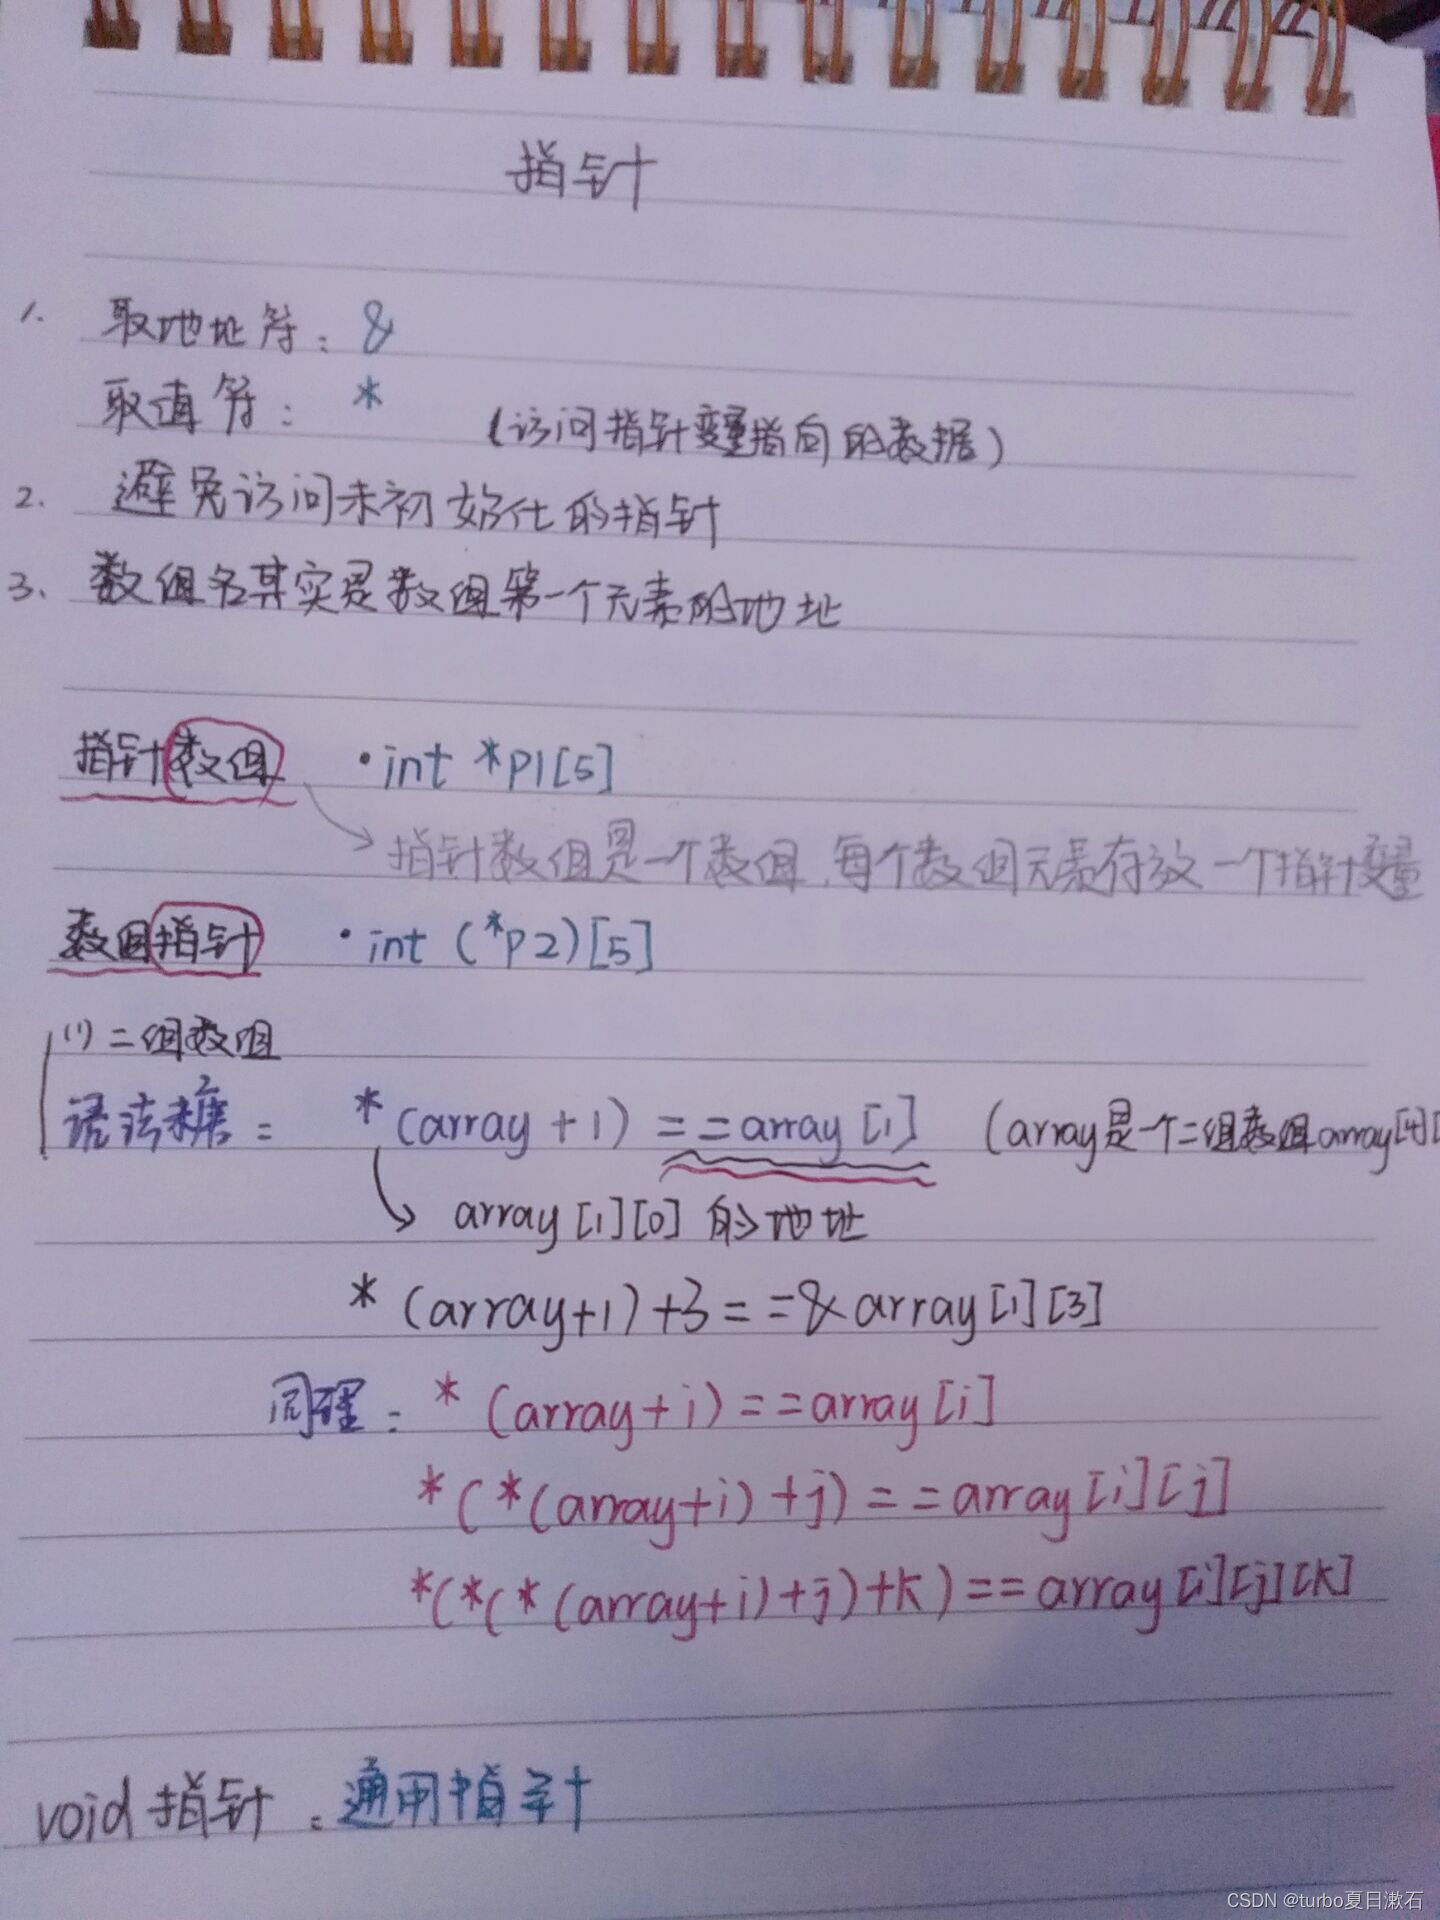 指针
1. 取地址符: &
取值符: * (访问指针变量指向的数据)
2. 避免访问未初始化的指针
3. 数组名其实是数组第一个元素的地址
指针数组 ·int *p1[5]
指针数组是一个数组,每个数组元素存放一个指针变量
数组指针 ·int (*p2)[5]
(1) 二组数组
语法糖: *(array+1)==array[1] (array是一个二组数组array[4][
array[1][0]的地址
*(array+1)+3==&array[1][3]
同理: *(array+i)==array[i]
*(*(array+i)+j)==array[i][j]
*(*(*(array+i)+j)+k)==array[i][j][k]
void指针:通用指针
CSDN @turbo夏日漱石